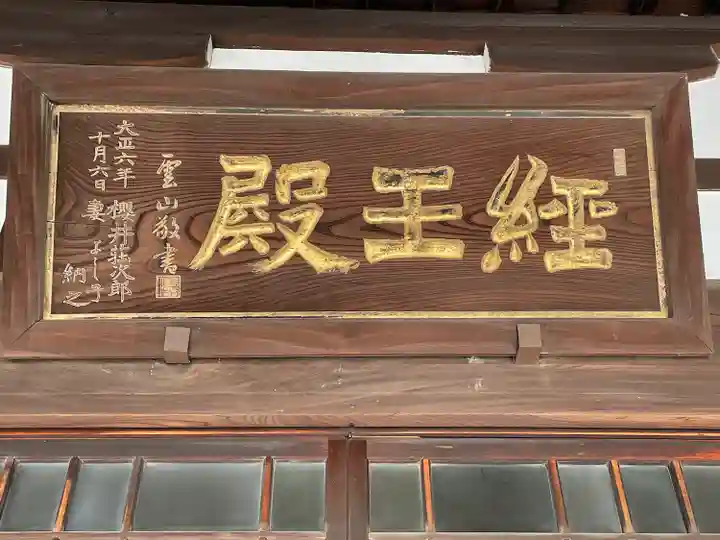 經王殿
雲山敬書
大正六年
十月六日
櫻井莊次郎
妻よし子
納之